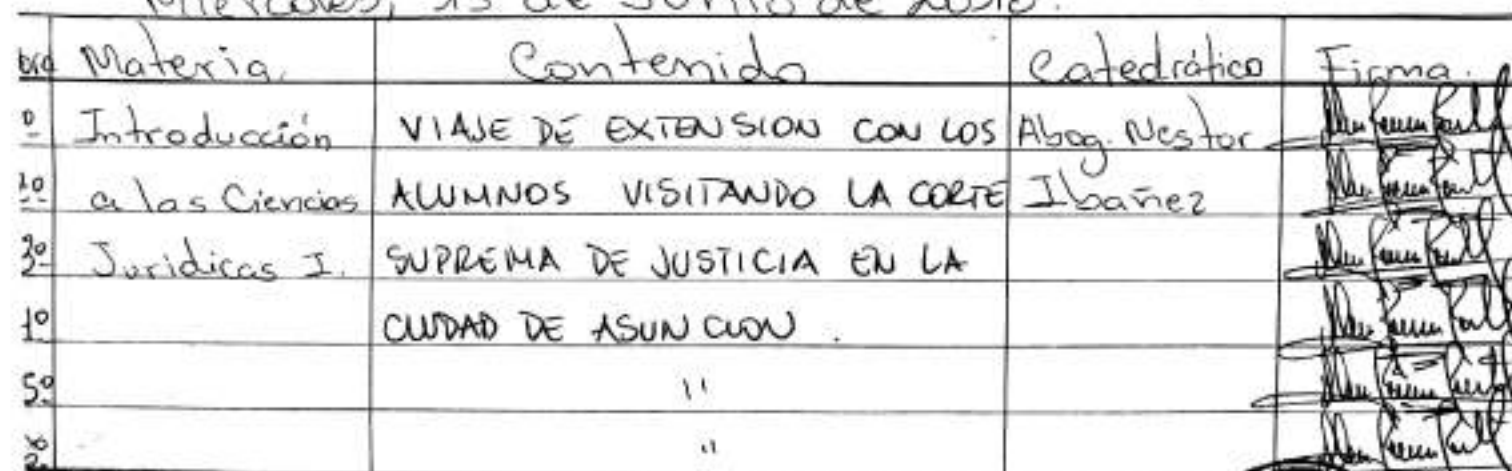 Miércoles, 13 de Junio de 2018.
ord Materia Contenido Catedrático Firma.
º Introducción VIAJE DE EXTENSION CON LOS Abog. Nestor
2º a las Ciencias ALUMNOS VISITANDO LA CORTE Ibañez
3º Juridicas I. SUPREMA DE JUSTICIA EN LA
4º CIUDAD DE ASUNCION.
5º "
6º "